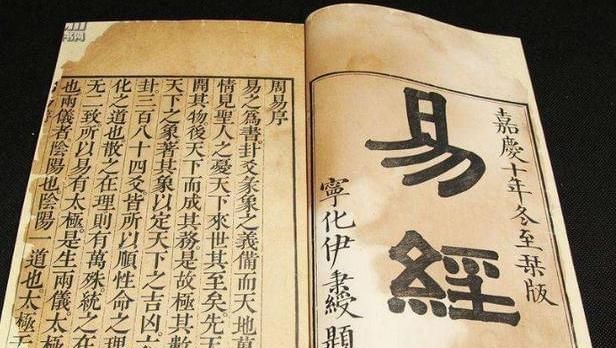 嘉慶十年冬至栞版
易經
寧化伊秉綬題
周易序
易之爲書卦爻彖象之義備而天地
情見聖人之憂天下來世其至矣先天
開其物後天下而成其務是故極其數
天下之象著其象以定天下之吉凶六
卦三百八十四爻皆所以順性命之理
化之道也散之在理則有萬殊統之在
无二致所以易有太極是生兩儀太
也兩儀者陰陽也陰陽一道也太極无